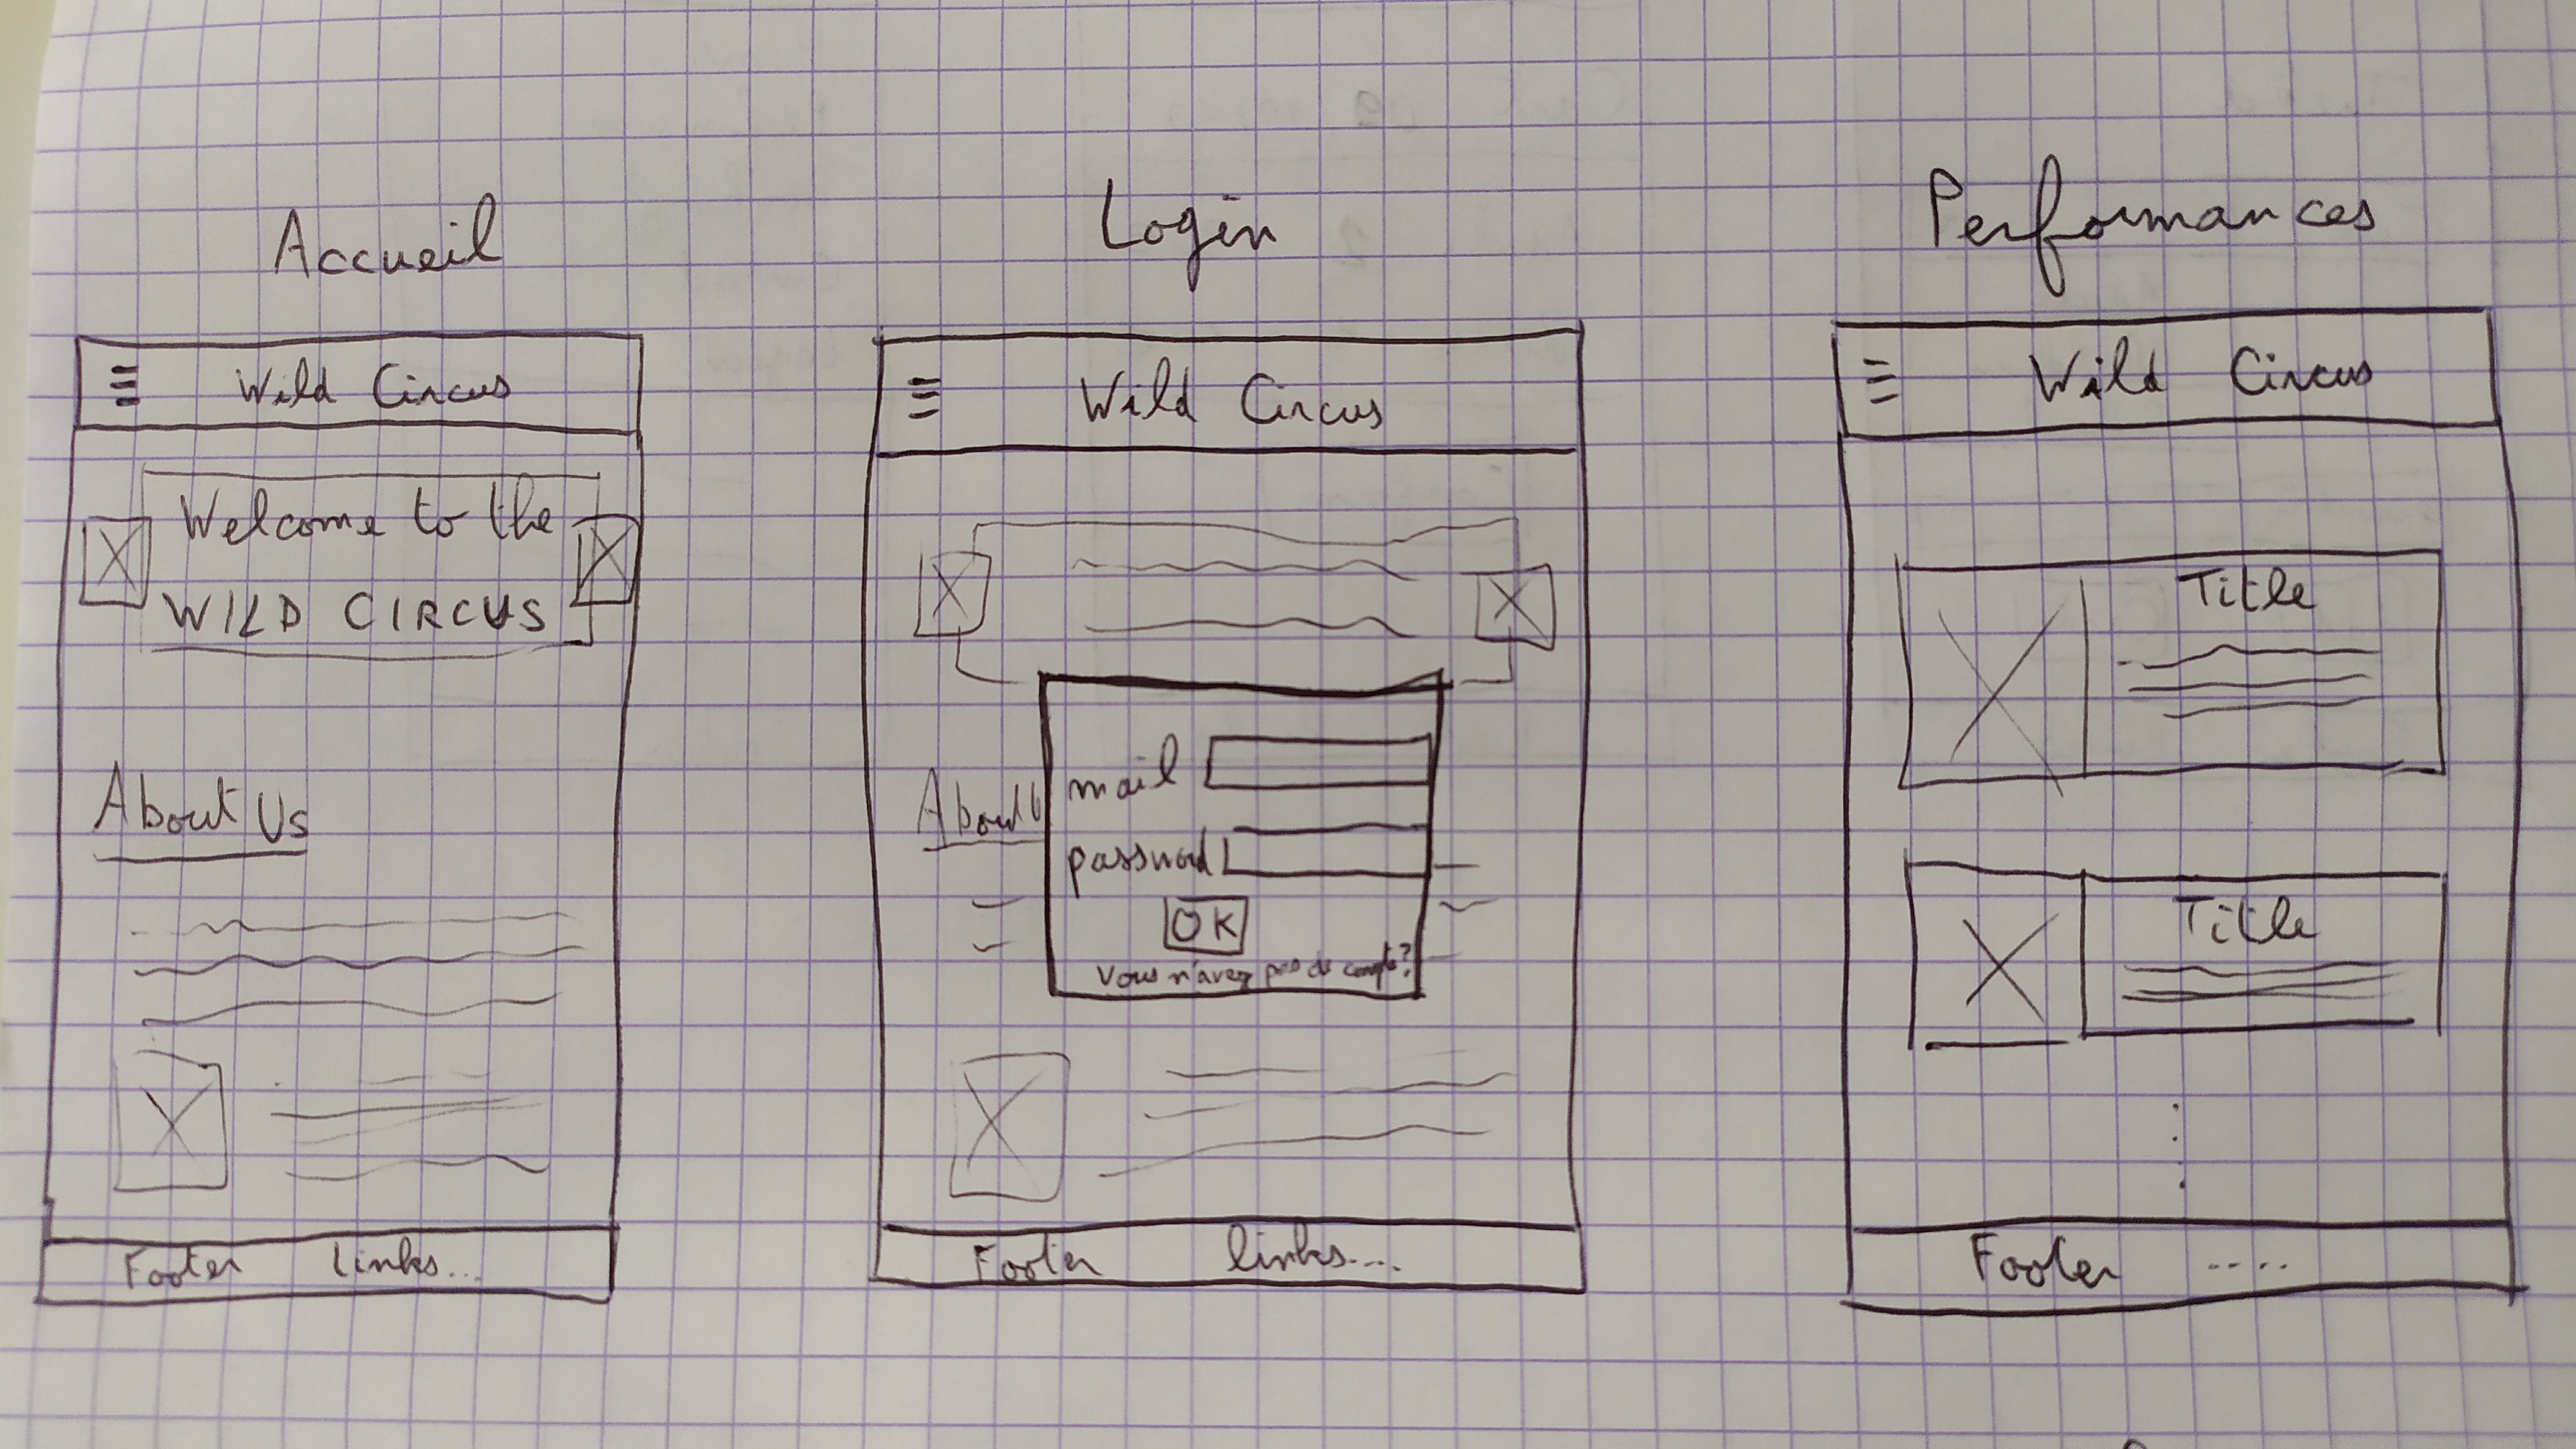 Accueil
Wild Circus
Welcome to the
WILD CIRCUS
About Us
Footer Links...
Login
Wild Circus
About U
mail
password
OK
Vous n'avez pas de compte?
Footer links....
Performances
Wild Circus
Title
Title
Footer ....